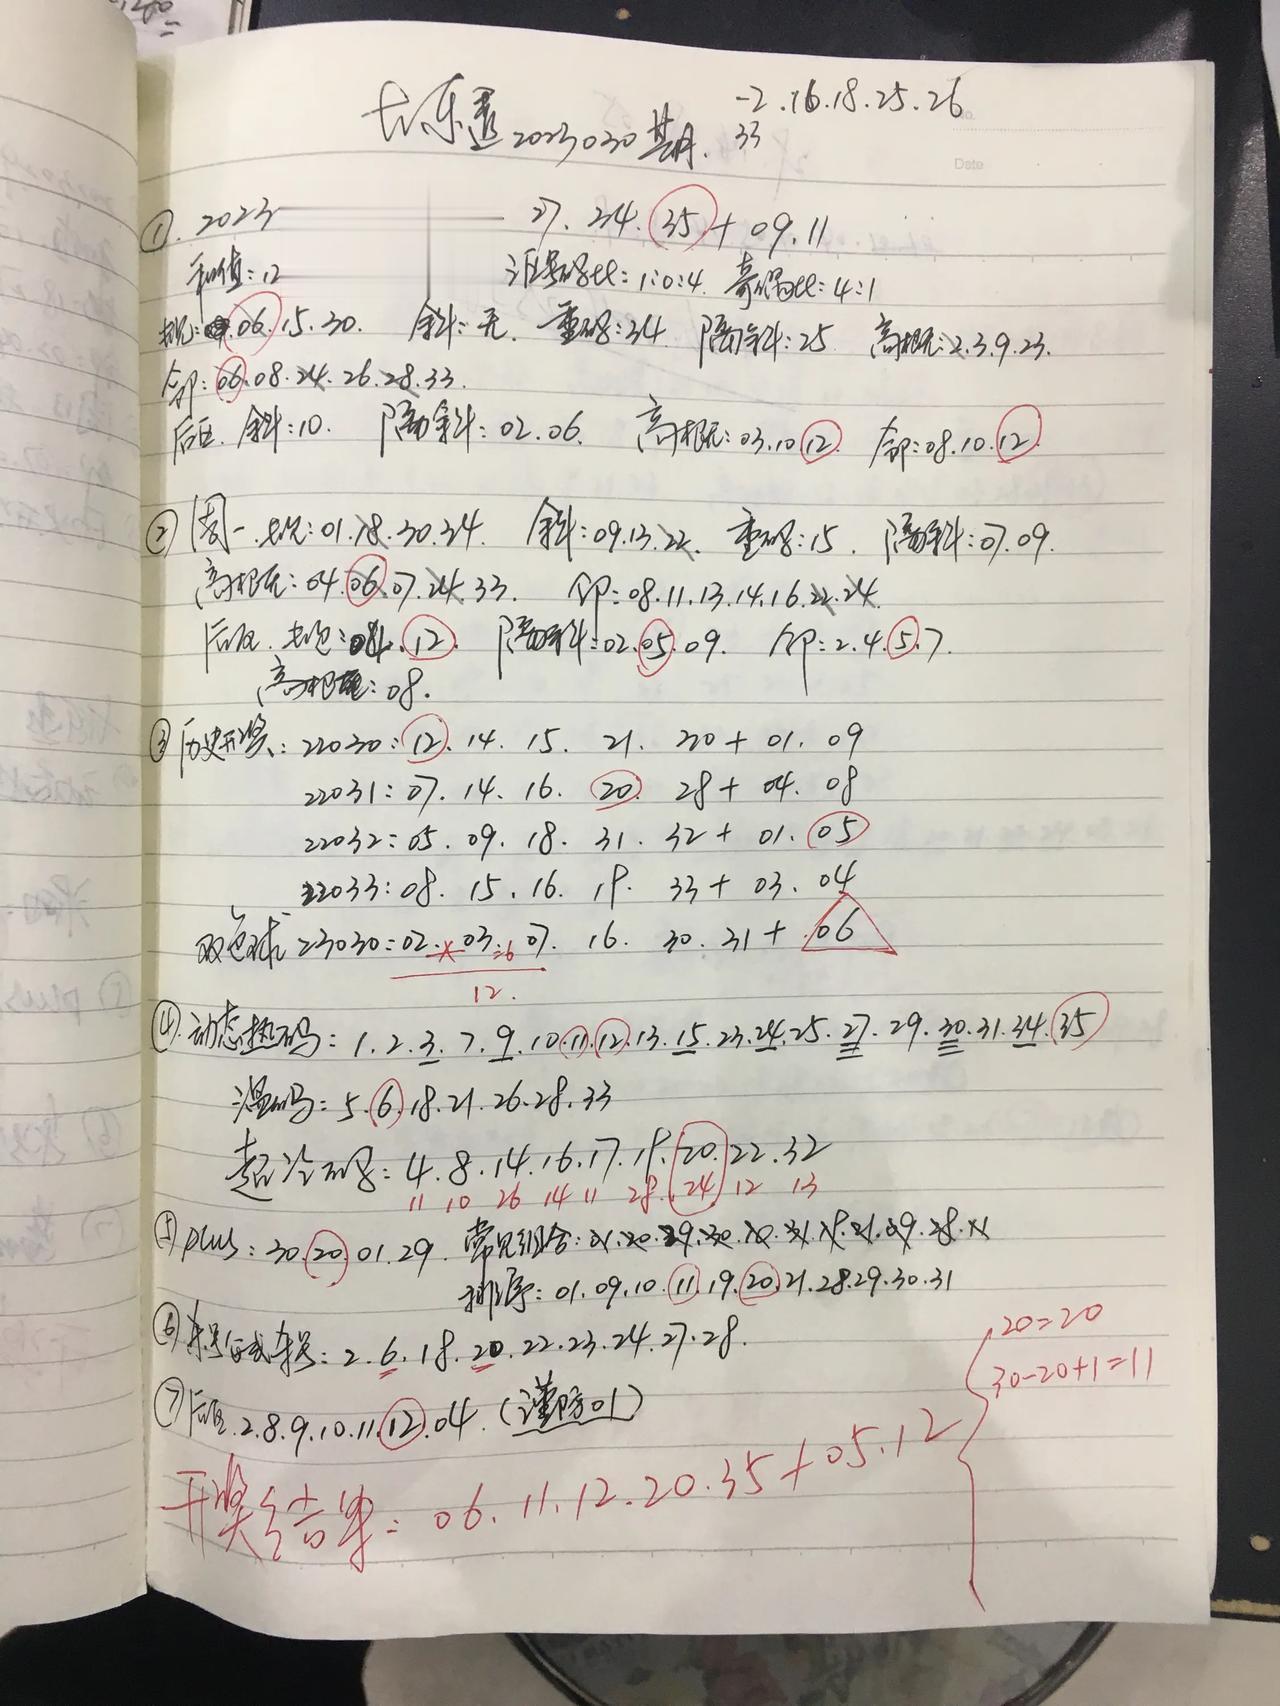 大乐透2023030期. -2.16.18.25.26
33
No.
Date
①. 2023 27.34.35+09.11
和值:12 三区号码比:1:0:4. 奇偶比:4:1
06.15.30. 余斜:无. 重码:34 隔余斜:25 高概:2.3.9.23.
06.08.24.26.28.33.
后区. 余斜:10. 隔余斜:02.06. 高概:03.10.12. 08.10.12.
②周一 01.18.30.34. 余斜:09.13.22. 重码:15. 隔余斜:07.09.
高概:04.06.07.24.33. 08.11.13.14.16.22.24.
后区. 12. 隔余斜:02.05.09. 2.4.5.7.
高概:08.
③历史开奖:22030:12.14.15.21.30+01.09
22031:07.14.16.20.28+04.08
22032:05.09.18.31.32+01.05
22033:08.15.16.19.33+03.04
双色球23030:02.03.07.16.30.31+06
× =6
12.
④.动态热码:1.2.3.7.9.10.11.12.13.15.23.24.25.27.29.30.31.34.35
温码:5.6.18.21.26.28.33
超冷码:4.8.14.16.17.19.20.22.32
11 10 26 14 11 28 24 12 13
⑤plus:30.20.01.29. 常见组合:
排序:01.09.10.11.19.20.21.28.29.30.31
⑥ 2.6.18.20.22.23.24.27.28.
20=20
30-20+1=11
⑦后区.2.8.9.10.11.12.04.(谨防01)
开奖结果:06.11.12.20.35+05.12